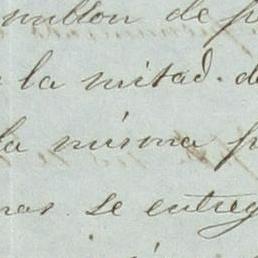 millon de p
la mitad. de
la misma p
nas se entreg